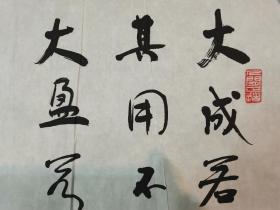 大成若
其用不
大盈若